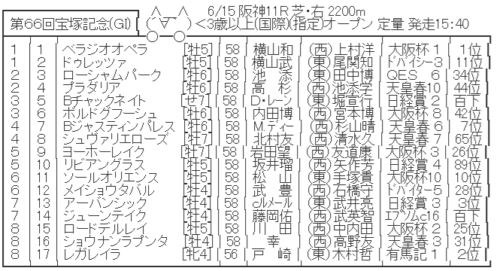 第66回宝塚記念(GI) 6/15 阪神11R 芝・右 2200m
(´∀`) <3歳以上(国際)(指定)オープン 定量 発走15:40
1 1 ベラジオオペラ [牡5] 58 横山和 (西)上村洋 大阪杯 1 1位
1 2 ドゥレッツァ [牡5] 58 横山武 (東)尾関知 ドバイシー3 11位
2 3 ローシャムパーク [牡6] 58 池添 (東)田中博 QES 6 34位
2 4 プラダリア [牡6] 58 高杉 (西)池添学 天皇春10 44位
3 5 Bチャックネイト [せ7] 58 D・レーン (東)堀宣行 日経賞2 百下
3 6 ボルドグフーシュ [牡6] 58 内田博 (西)宮本博 大阪杯 8 42位
4 7 Bジャスティンパレス [牡6] 58 M.ディー (西)杉山晴 天皇春 6 7位
4 8 シュヴァリエローズ [牡7] 58 北村友 (西)清水久 天皇春 7 65位
5 9 ヨーホーレイク [牡7] 58 岩田望 (西)友道康 大阪杯 3 26位
5 10 リビアングラス [牡5] 58 坂井瑠 (西)矢作芳 日経賞 4 89位
6 11 ソールオリエンス [牡5] 58 松山 (東)手塚貴 大阪杯10 10位
6 12 メイショウタバル [牡4] 58 武豊 (西)石橋守 ドバイター5 28位
7 13 アーバンシック [牡4] 58 cルメール (東)武井亮 日経賞 3 3位
7 14 ジューンテイク [牡4] 58 藤岡佑 (西)武英智 エプソムc16 百下
8 15 ロードデルレイ [牡5] 58 川田 (西)中内田 大阪杯 2 25位
8 16 ショウナンラプンタ [牡4] 58 幸 (西)高野友 天皇春 3 31位
8 17 レガレイラ [牝4] 56 戸崎 (東)木村哲 有馬記 1 2位